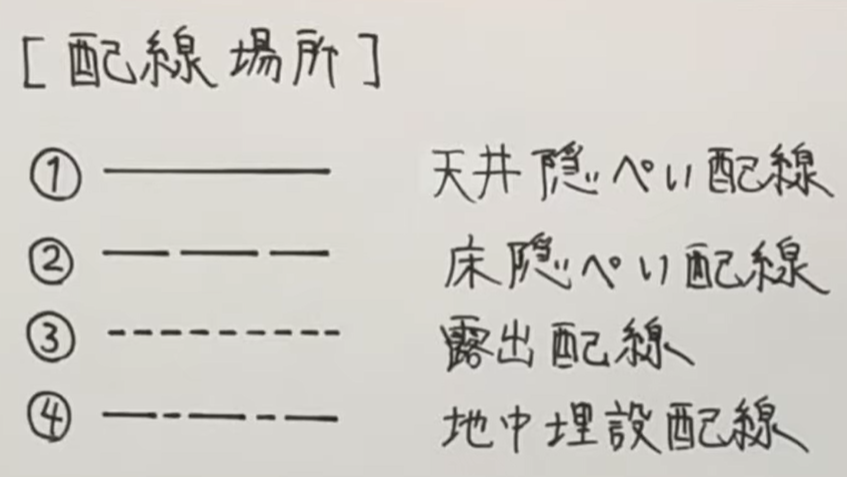 [配線場所]
① 天井隠ぺい配線
② 床隠ぺい配線
③ 露出配線
④ 地中埋設配線